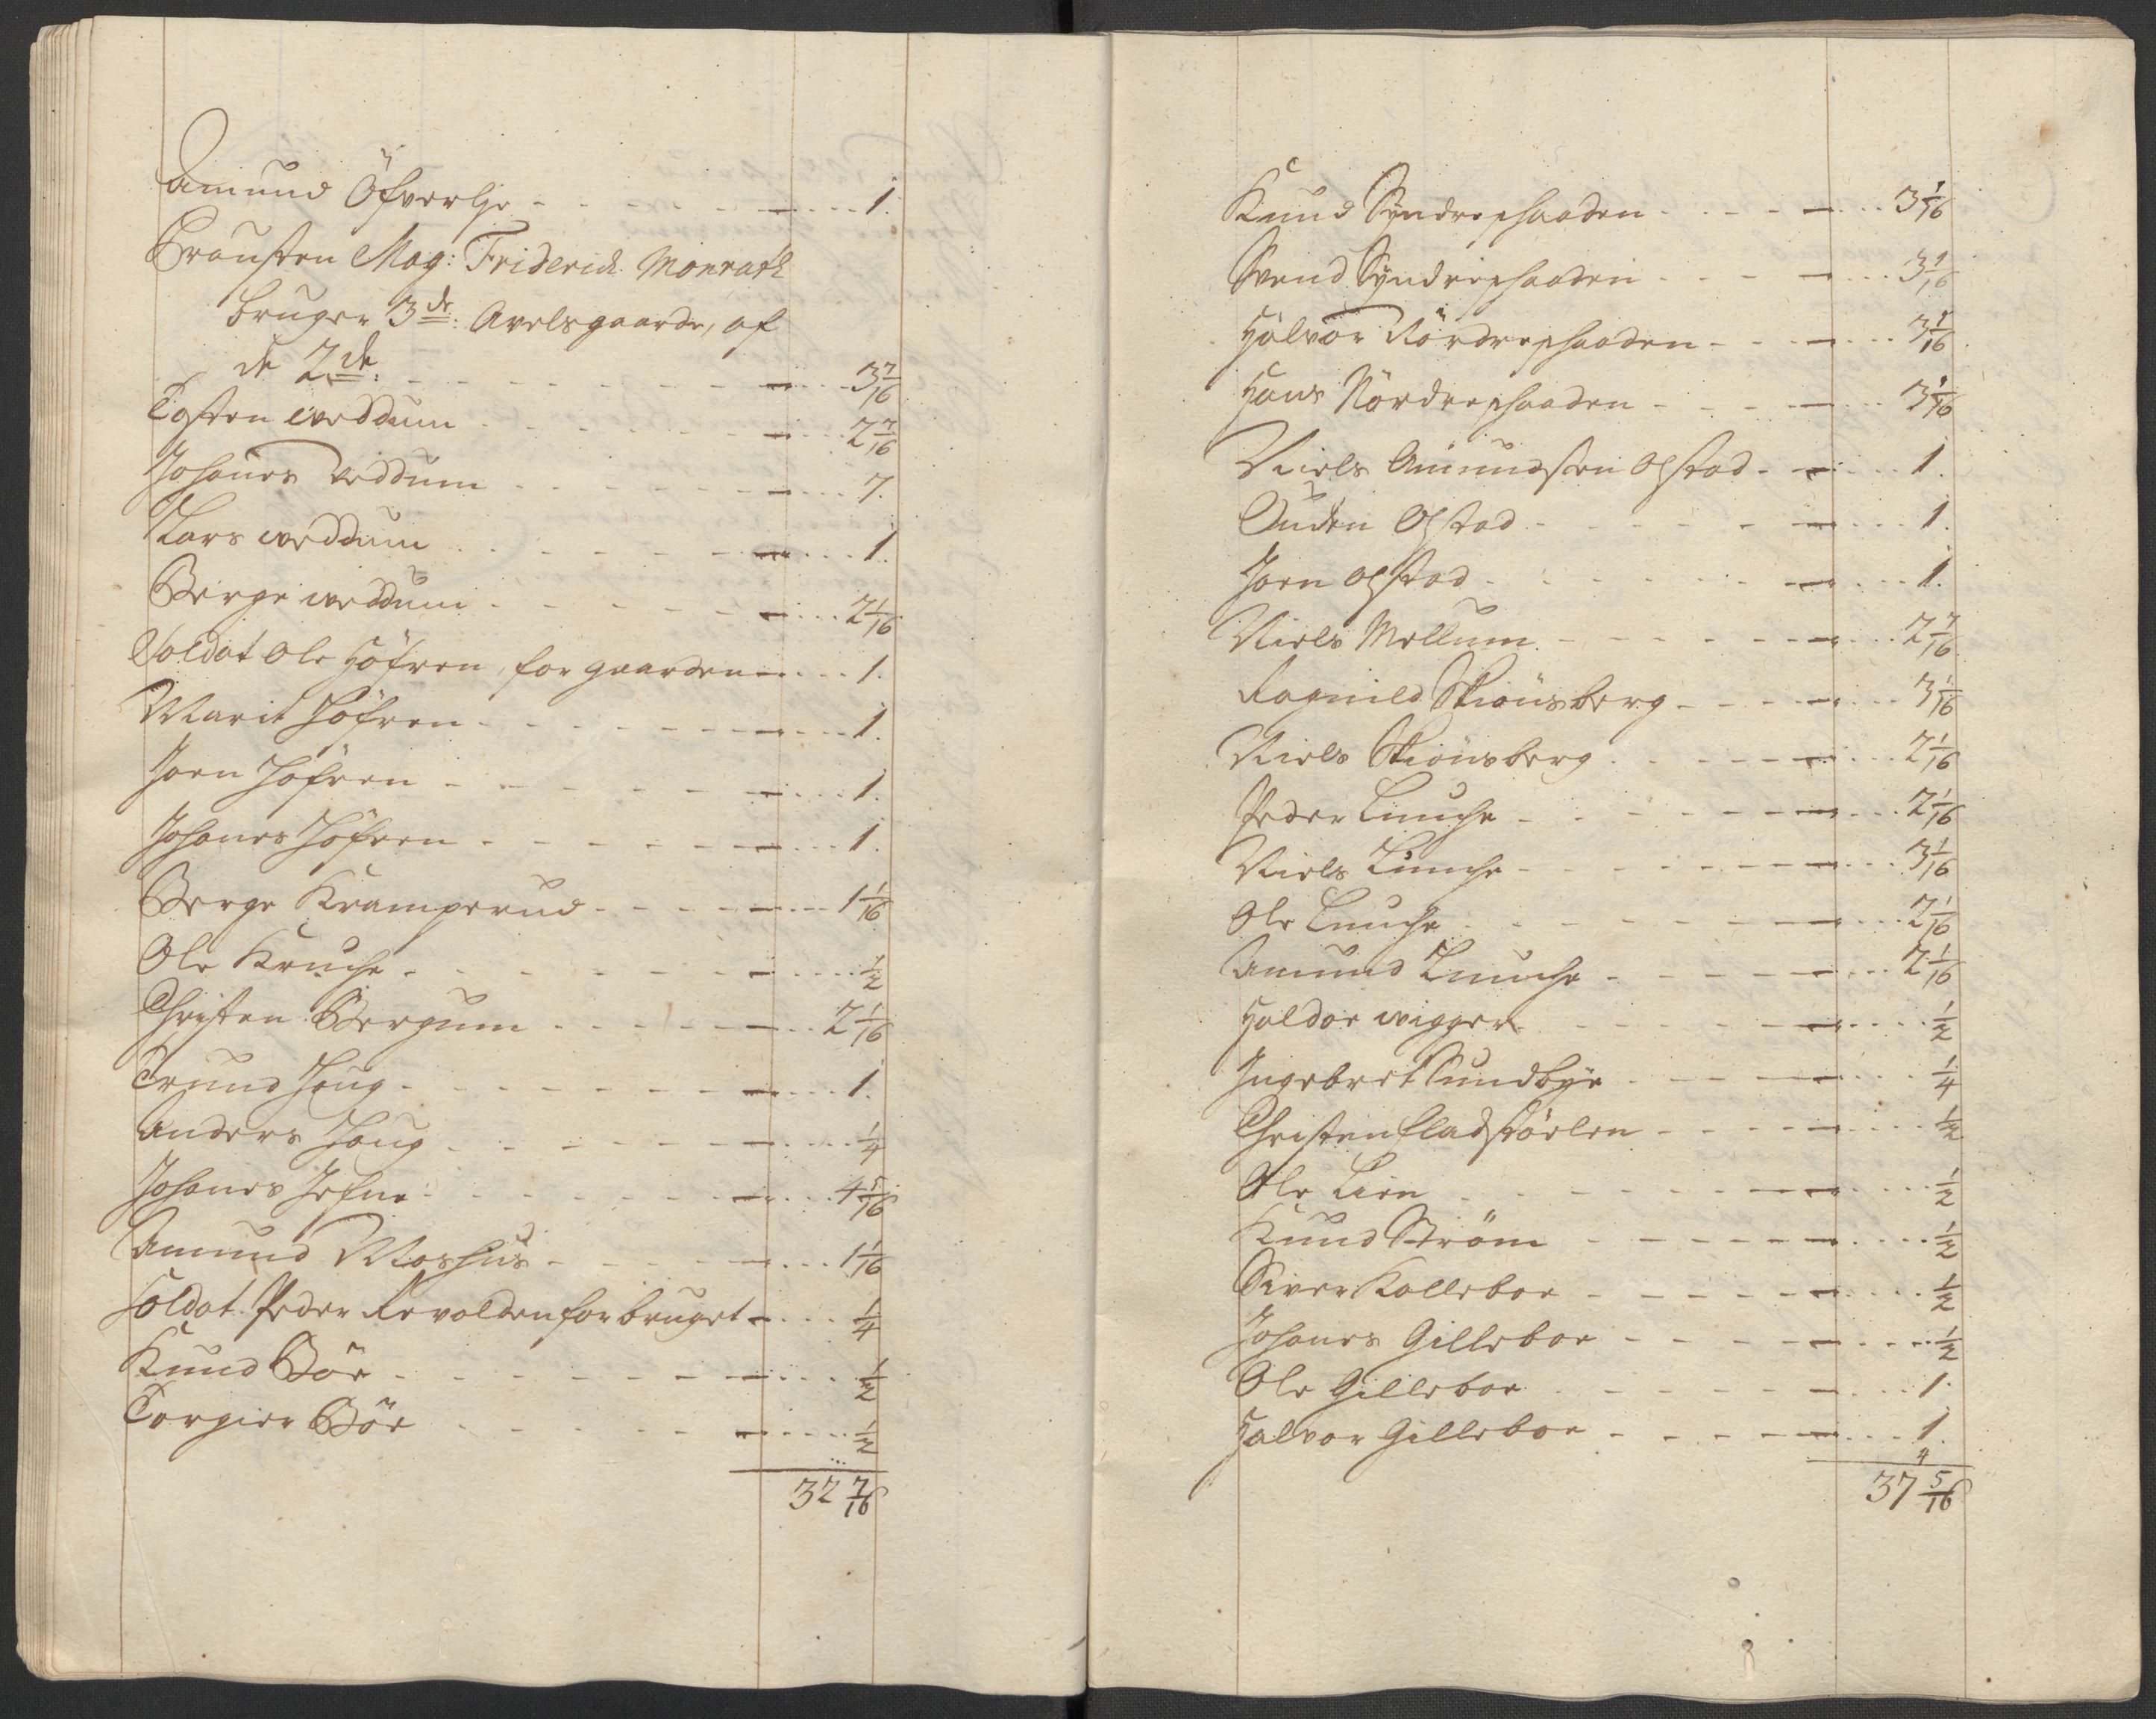 Amund Öfverlje 1.
Prousten Mag: Friderich Monrath
bruger 3de: Avelsgaarde, af
de 2de: 3 7/16
Tosten weddum 2 7/16
Johanes Weddum 7.
Lars weddum 1.
Berge weddum 2 1/16
Soldat Ole Höfren, for gaarden 1.
Marit Höfren 1.
Joen Höfren 1.
Johanes Höfren 1.
Berge Kramperud 1 1/16
Ole Kruche 1/2
Christen Bergum 2 1/16
Trund Houg 1.
Anders Houg 1/4
Johanes Hefne 4 5/16
Amund Moshus 1 1/16
Soldat Peder Revolden for bruget 1/4
Knud Böe 1/2
Torgier Böe 1/2
32 7/16
Knud Syndrephaaden 3 1/16
Svend Syndrephaaden 3 1/16
Halvor Nördrephaaden 3 1/16
Hans Nördrephaaden 3 1/16
Niels Amundsen Opstad 1.
Auden Opstad 1.
Joen Opstad 1.
Niels Mellum 2 7/16
Ragnild Skiönsberg 3 1/16
Niels Skiönsberg 2 1/16
Peder Lunche 2 1/16
Niels Lunche 3 1/16
Ole Lunche 2 1/16
Amund Lunche 2 1/16
Haldor wigger 1/2
Ingebret Sundbye 1/4
Christen Fladstöelen 1/2
Ole Lien 1/2
Knud Ström 1/2
Siver Kolleboe 1/2
Johanes Gilleboe 1/2
Ole Gilleboe 1.
Halvor Gilleboe 1.
37 5/16